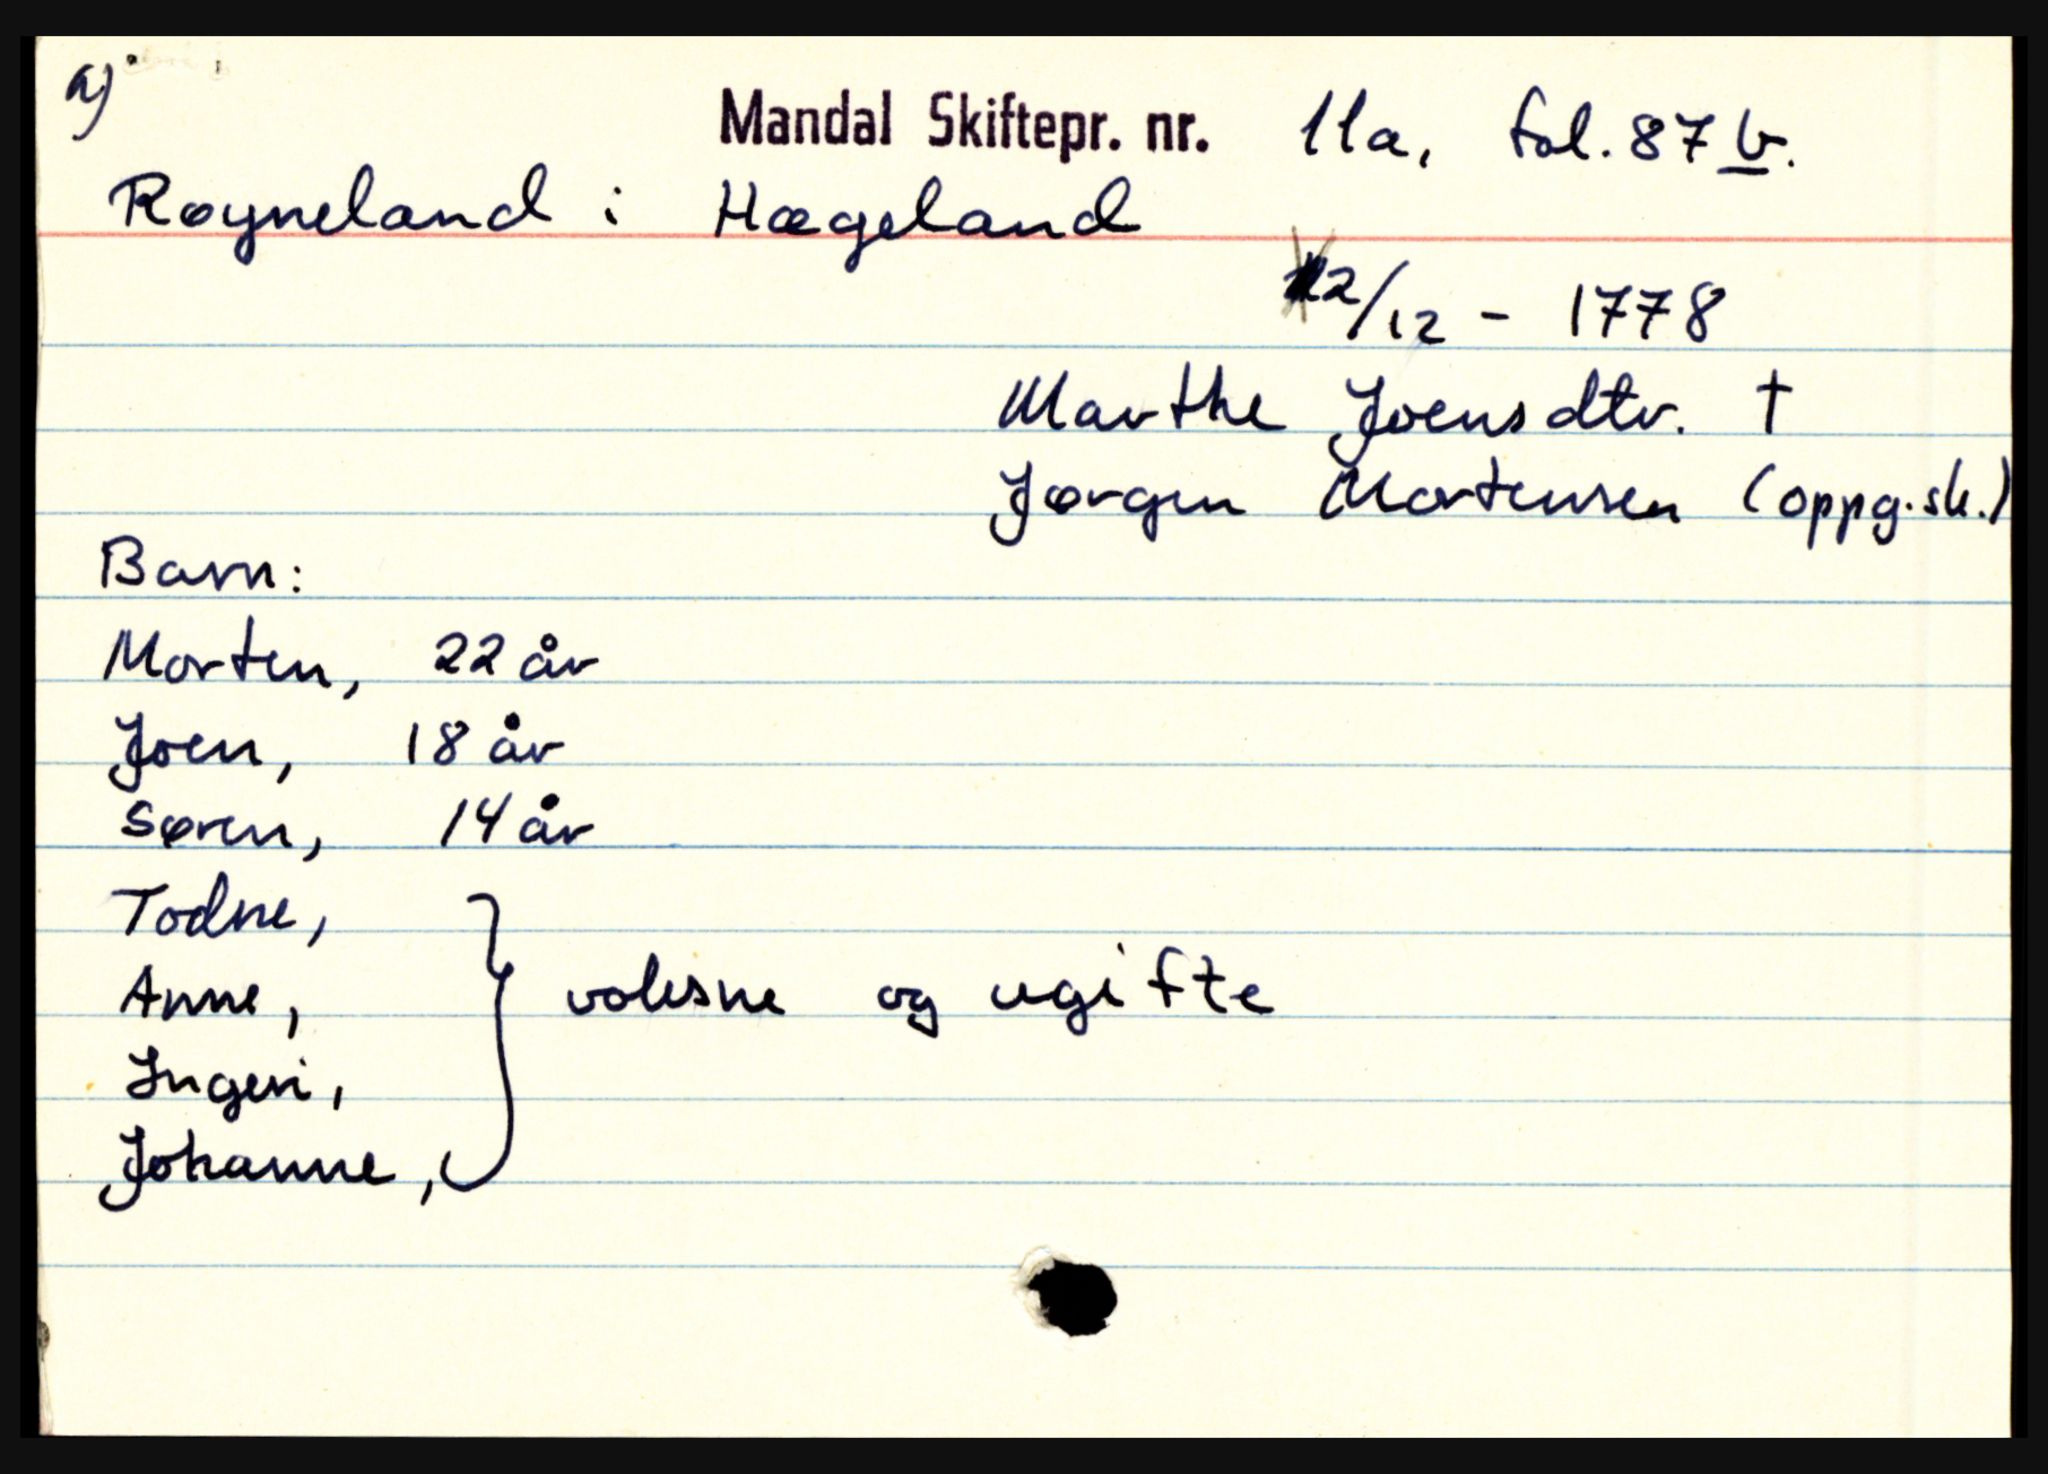 a)
Mandal Skiftepr. nr. 11a, fol. 87b.
Røyneland i Hægeland
2/12 - 1778
Marthe Joensdtr. †
Jørgen Mortensen (oppg.sk.)
Barn:
Morten, 22 år
Joen, 18 år
Søren, 14 år
Todne,
Anne, voksne og ugifte
Ingeri,
Johanne,